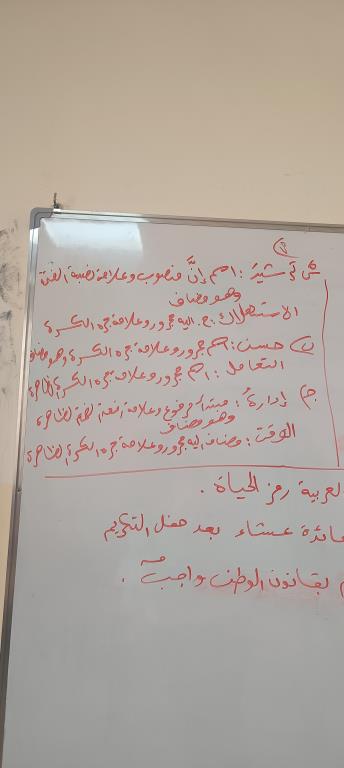 ٢
ش ترشيدَ : اسم إنَّ منصوب وعلامة نصبه الفتحة
وهو مضاف
الاستهلاك : م. إليه مجرور وعلامة جره الكسرة
ب) حسن : اسم مجرور وعلامة جره الكسرة وهو مضاف
التعامل : اسم مجرور وعلامة جره الكسرة الظاهرة
ج) إدارةُ : مبتدأ مرفوع وعلامة الضمة الظاهرة
وهو مضاف
الوقت : مضاف إليه مجرور وعلامة جره الكسرة الظاهرة
العربية رمز الحياة .
مائدة عشاء بعد حفل التكريم
بقانون الوطن واجبٌ .